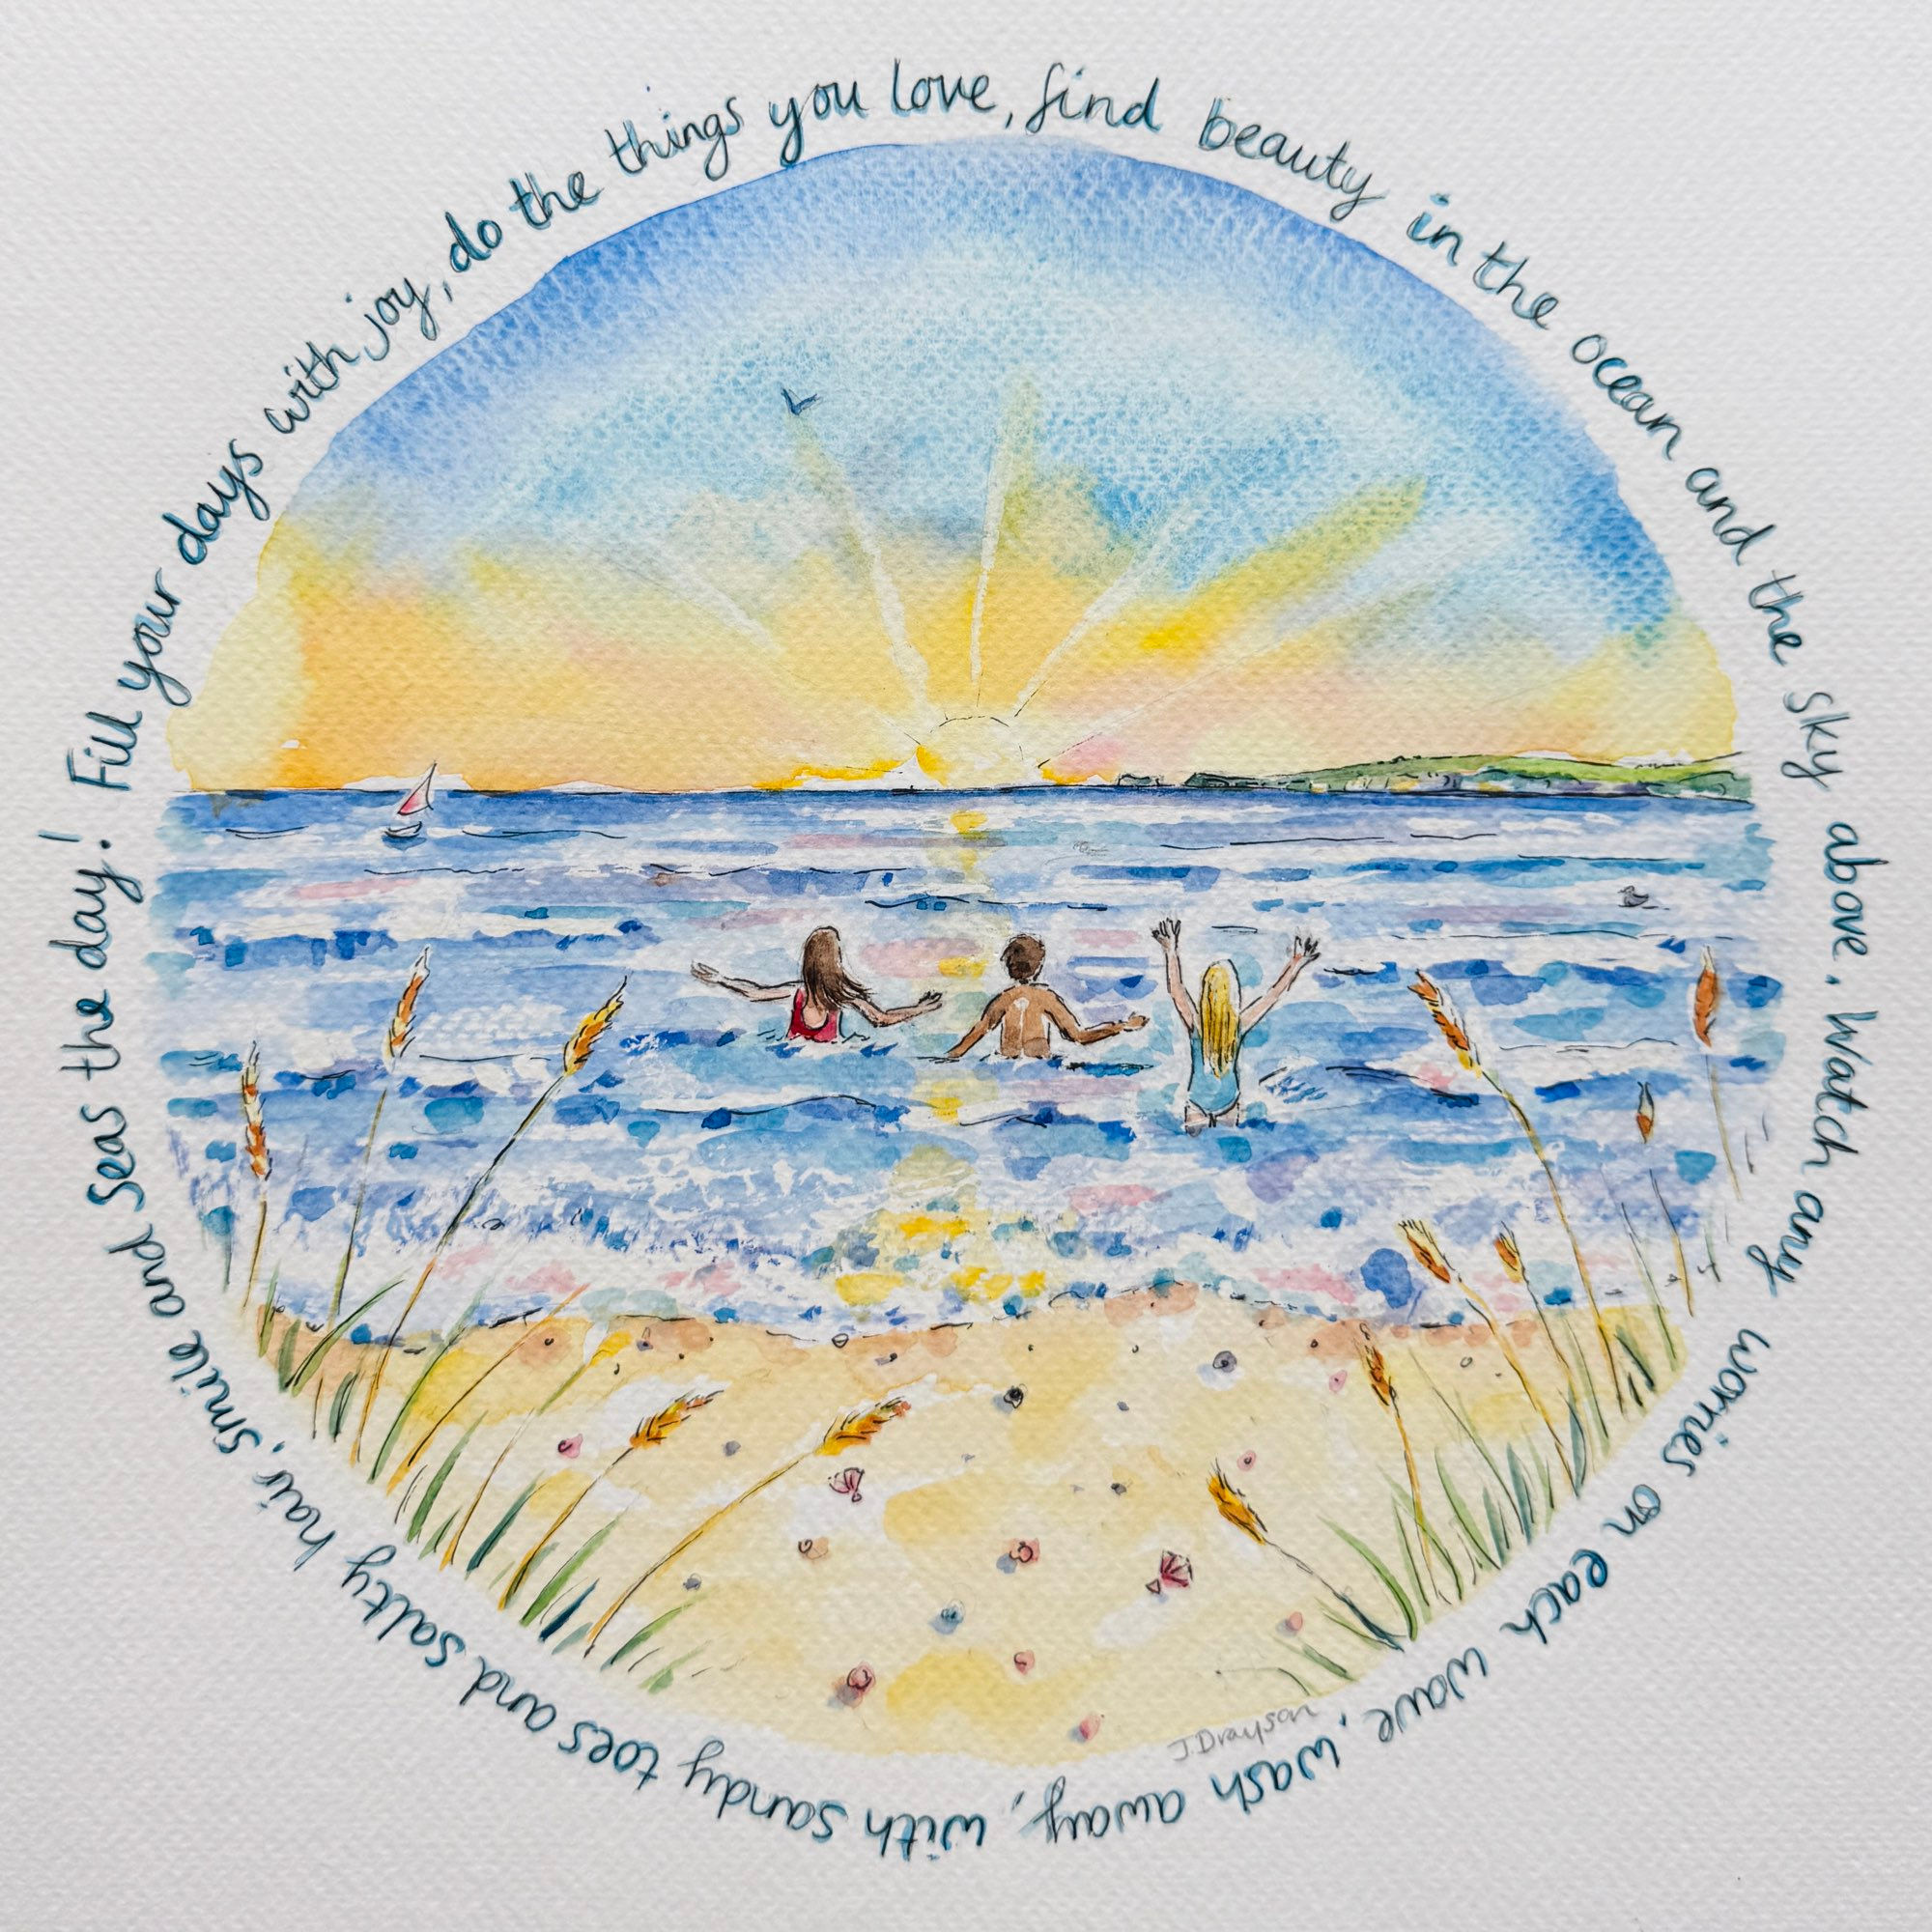 Fill your days with joy, do the things you love, find beauty in the ocean and the sky above. Watch any worries on each wave, wash away, with sandy toes and salty hair, smile and seas the day!
J.Drayson